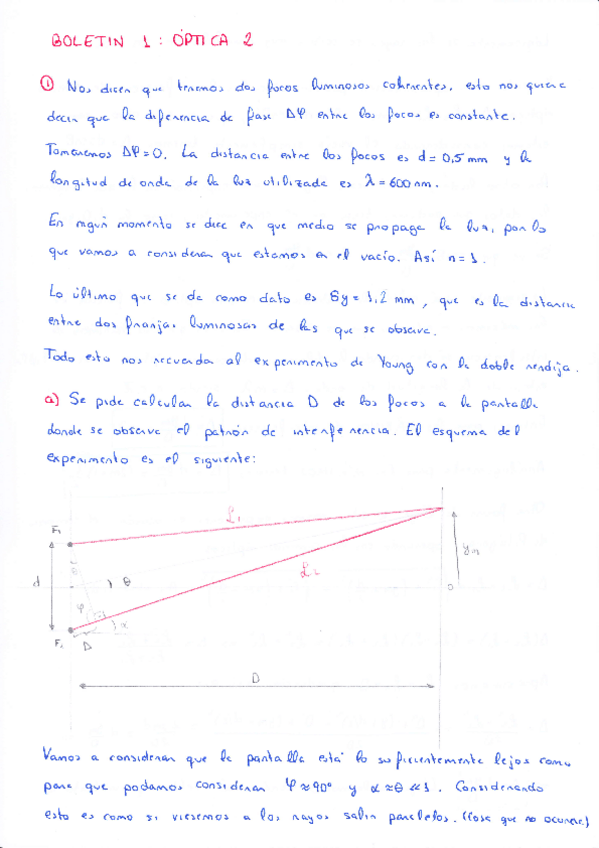 BOLETIN 1: ÓPTICA 2
① Nos dicen que tenemos dos focos luminosos coherentes, esto nos quiere
decir que la diferencia de fase Δφ entre los focos es constante.
Tomaremos Δφ=0. La distancia entre los focos es d=0,5 mm y la
longitud de onda de la luz utilizada es λ=600nm.
En ningún momento se dice en que medio se propaga la luz, por lo
que vamos a considerar que estamos en el vacío. Así n=1.
Lo último que se da como dato es δy=1,2 mm, que es la distancia
entre dos franjas luminosas de las que se observa.
Todo esto nos recuerda al experimento de Young con la doble rendija.
a) Se pide calcular la distancia D de los focos a la pantalla
donde se observa el patrón de interferencia. El esquema del
experimento es el siguiente:
F1
L1
L2
d
θ
O
φ
α
F2
Δ
D
Vamos a considerar que la pantalla está lo suficientemente lejos como
para que podamos considerar φ≈90° y α≈θ≪1. Considerando
esto es como si viésemos a los rayos salir paralelos. (Cosa que no ocurre.)